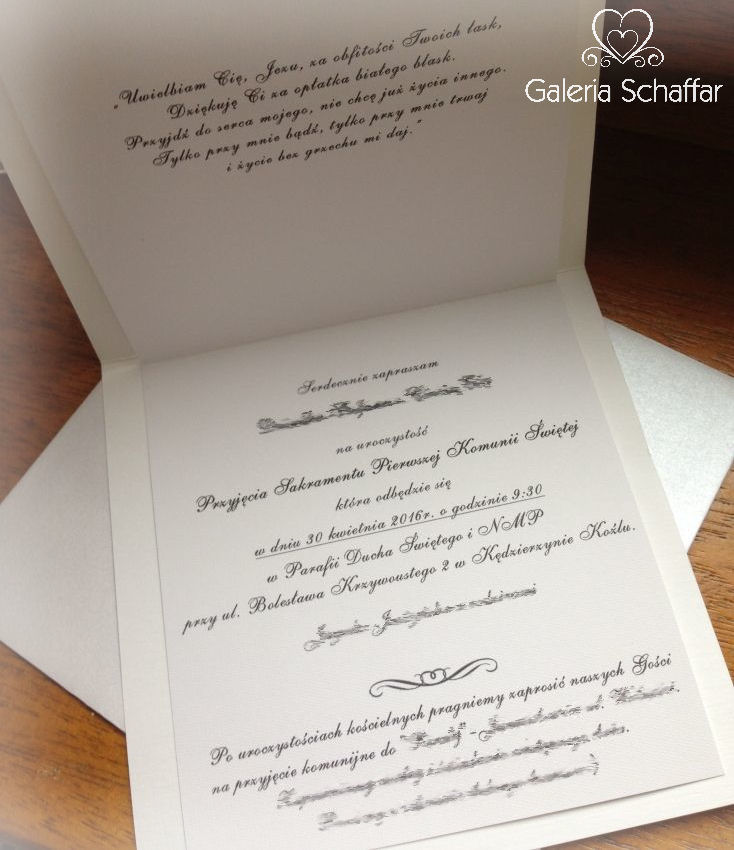 Galeria Schaffar
"Uwielbiam Cię, Jezu, za obfitości Twoich łask,
Dziękuję Ci za opłatka białego blask.
Przyjdź do serca mojego, nie chcę już życia innego.
Tylko przy mnie bądź, tylko przy mnie trwaj
i życie bez grzechu mi daj."
Serdecznie zapraszam
na uroczystość
Przyjęcia Sakramentu Pierwszej Komunii Świętej
która odbędzie się
w dniu 30 kwietnia 2016r. o godzinie 9:30
w Parafii Ducha Świętego i NMP
przy ul. Bolesława Krzywoustego 2 w Kędzierzynie Koźlu.
Po uroczystościach kościelnych pragniemy zaprosić naszych Gości
na przyjęcie komunijne do